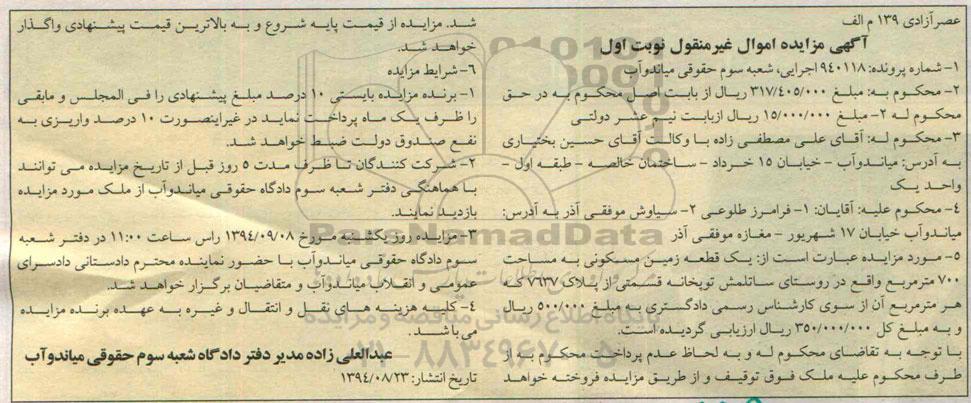 عصرآزادی ۱۳۹ م الف
آگهی مزایده اموال غیرمنقول نوبت اول
۱- شماره پرونده: ۹٤۰۱۱۸ اجرایی، شعبه سوم حقوقی میاندوآب
۲- محکوم به: مبلغ ۳۱۷/٤۰۵/۰۰۰ ریال از بابت اصل محکوم به در حق
محکوم له ۲- مبلغ ۱۵/۰۰۰/۰۰۰ ریال ازبابت نیم عشر دولتی
۳- محکوم له: آقای علی مصطفی زاده با وکالت آقای حسین بختیاری
به آدرس: میاندوآب - خیابان ۱۵ خرداد - ساختمان خالصه - طبقه اول -
واحد یک
٤- محکوم علیه: آقایان: ۱- فرامرز طلوعی ۲- سیاوش موفقی آذر به آدرس:
میاندوآب خیابان ۱۷ شهریور - مغازه موفقی آذر
۵- مورد مزایده عبارت است از: یک قطعه زمین مسکونی به مساحت
۷۰۰ مترمربع واقع در روستای ساتلمش توپخانه قسمتی از پلاک ۷٦۳۷ که
هر مترمربع آن از سوی کارشناس رسمی دادگستری به مبلغ ۵۰۰/۰۰۰ ریال
و به مبلغ کل ۳۵۰/۰۰۰/۰۰۰ ریال ارزیابی گردیده است.
با توجه به تقاضای محکوم له و به لحاظ عدم پرداخت محکوم به از
طرف محکوم علیه ملک فوق توقیف و از طریق مزایده فروخته خواهد
شد. مزایده از قیمت پایه شروع و به بالاترین قیمت پیشنهادی واگذار
خواهد شد.
٦- شرایط مزایده
۱- برنده مزایده بایستی ۱۰ درصد مبلغ پیشنهادی را فی المجلس و مابقی
را ظرف یک ماه پرداخت نماید در غیراینصورت ۱۰ درصد واریزی به
نفع صندوق دولت ضبط خواهد شد.
۲- شرکت کنندگان تا ظرف مدت ۵ روز قبل از تاریخ مزایده می توانند
با هماهنگی دفتر شعبه سوم دادگاه حقوقی میاندوآب از ملک مورد مزایده
بازدید نمایند.
۳- مزایده روز یکشنبه مورخ ۱۳۹٤/۰۹/۰۸ راس ساعت ۱۱:۰۰ در دفتر شعبه
سوم دادگاه حقوقی میاندوآب با حضور نماینده محترم دادستانی دادسرای
عمومی و انقلاب میاندوآب و متقاضیان برگزار خواهد شد.
٤- کلیه هزینه های نقل و انتقال و غیره به عهده برنده مزایده
می باشد.
عبدالعلی زاده مدیر دفتر دادگاه شعبه سوم حقوقی میاندوآب
تاریخ انتشار: ۱۳۹٤/۰۸/۲۳
ParsNamadData
پایگاه اطلاع رسانی مناقصه و مزایده
۰۲۱-۸۸۳٤۹٦۷۰-۵